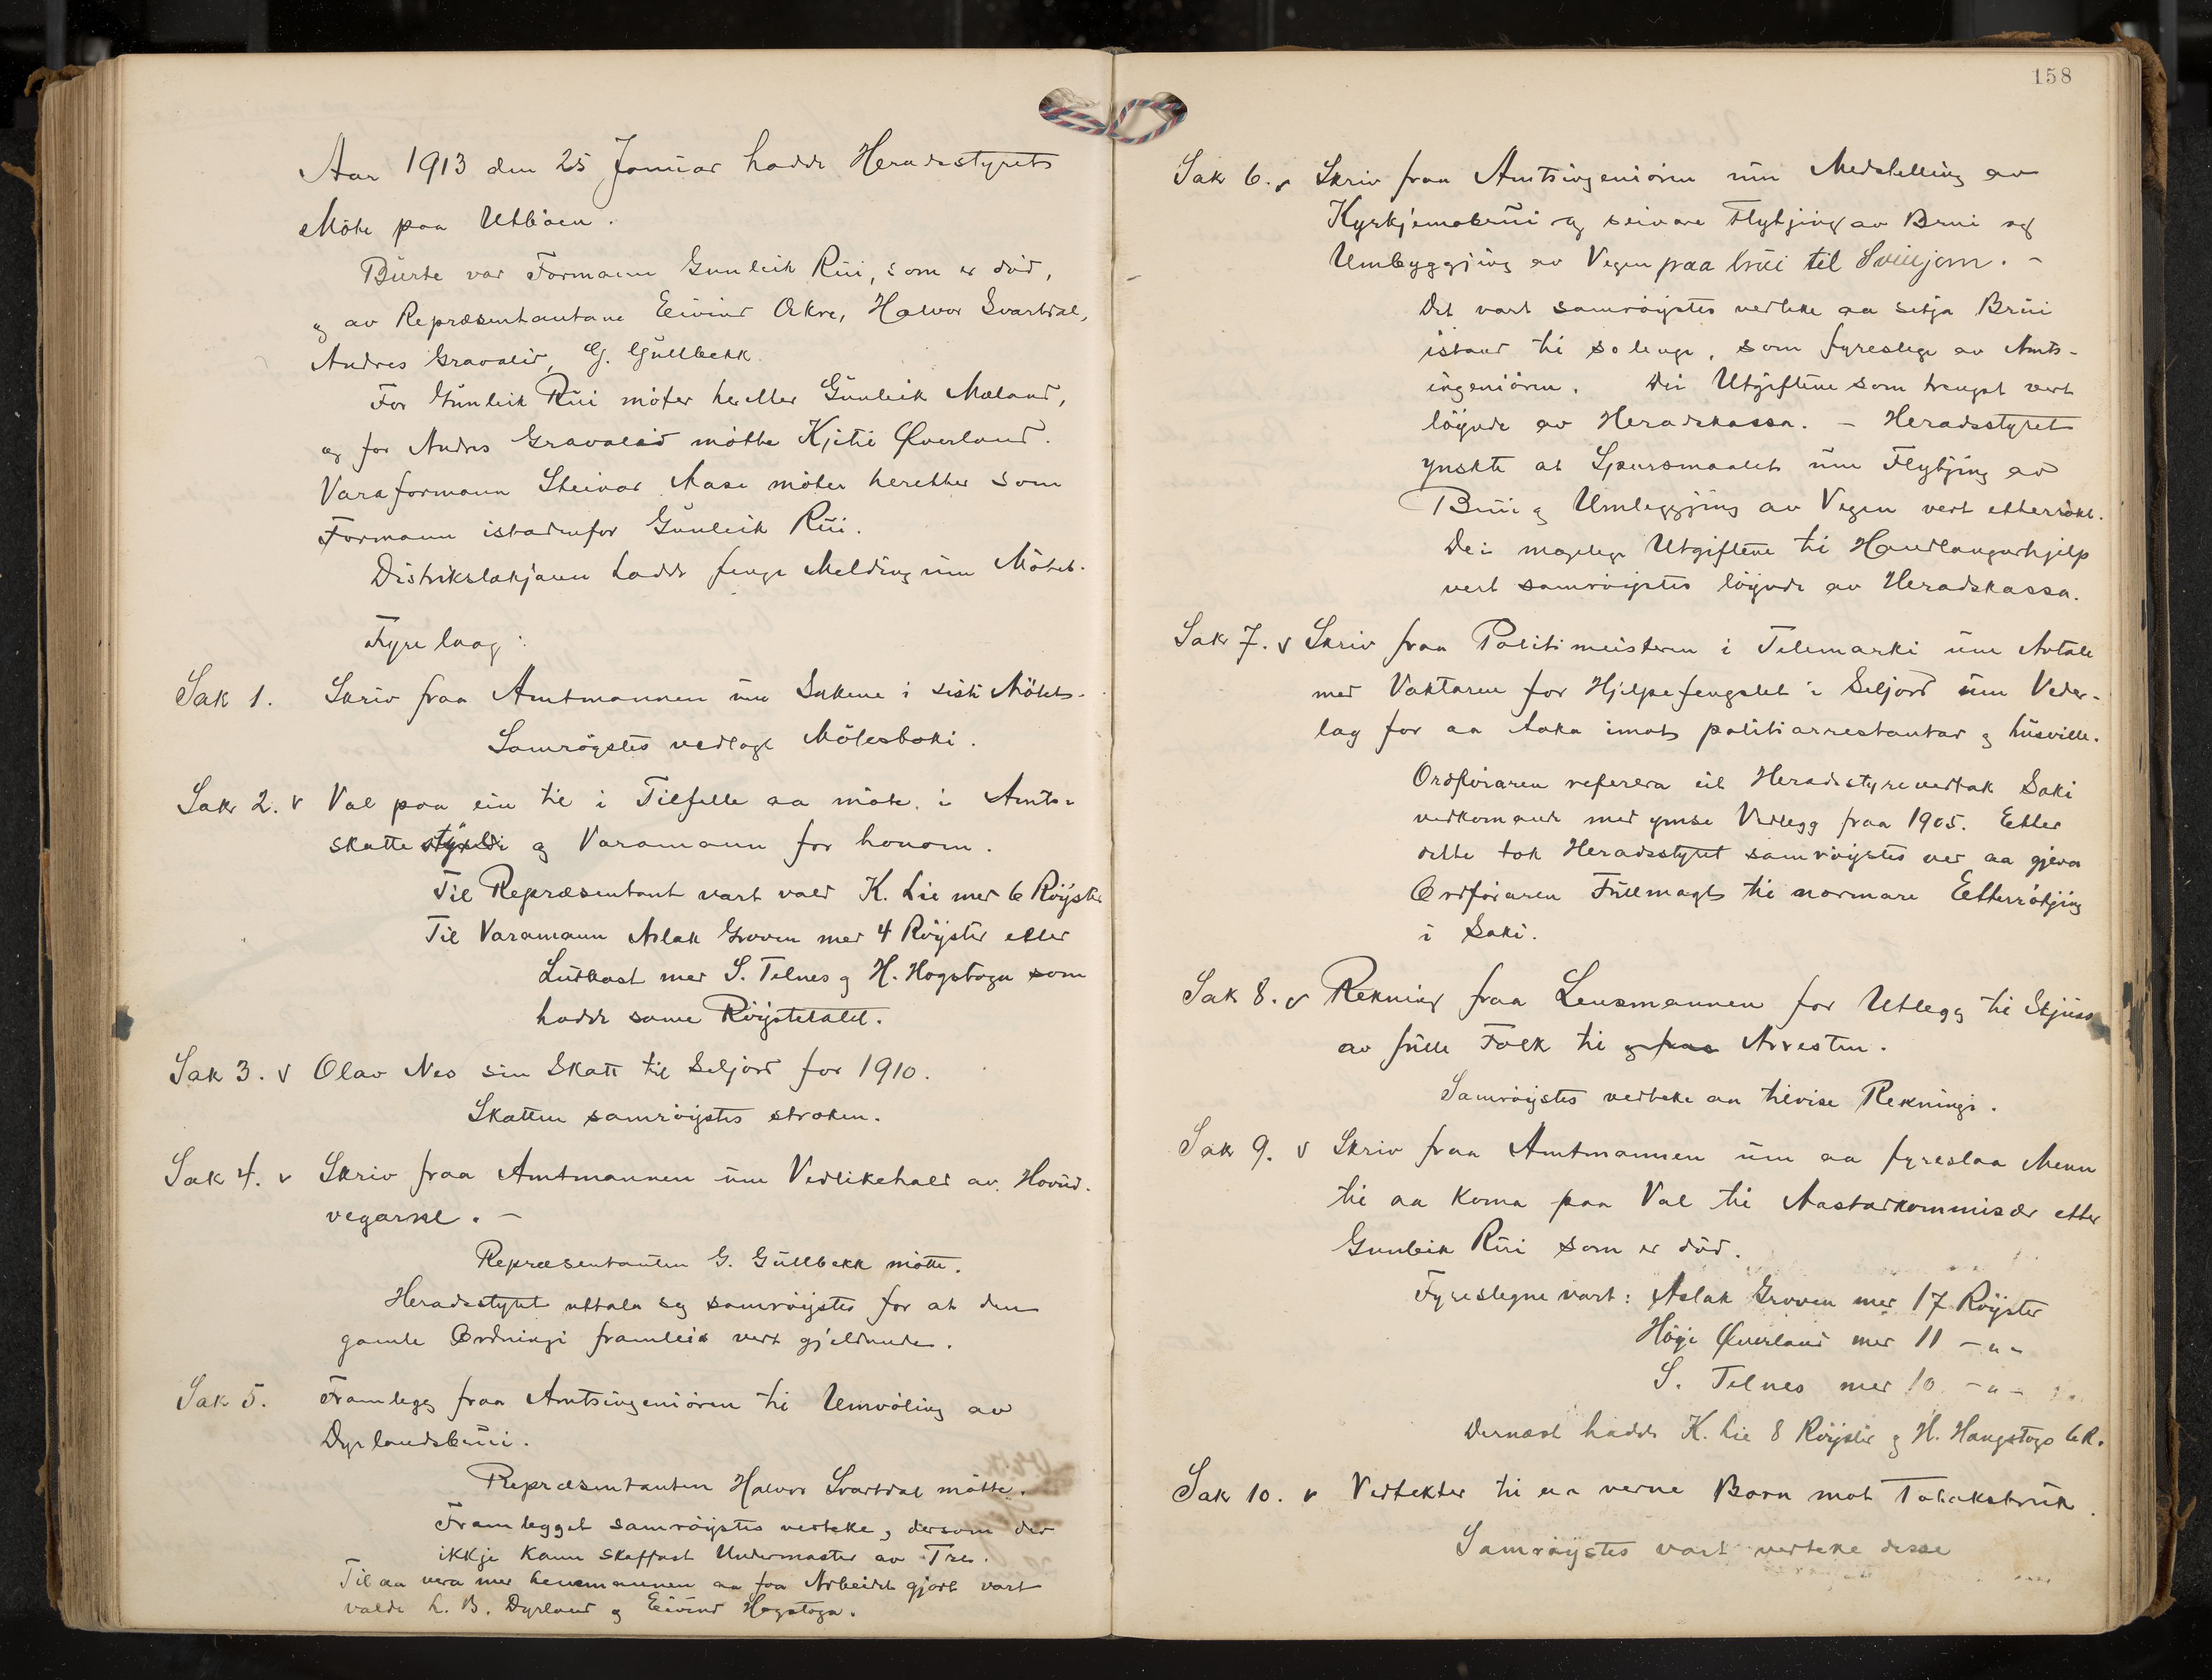 Aar 1913 den 25 Januar hadde Heradsstyrets
Möte paa Utböen.
Burte var Formann Gunleik Rui, som er död,
og av Repræsentantane Eivind Okre, Halvor Svartdal,
Andres Gravalid, G. Gullbekk.
For Gunleik Rui möter heretter Gunleik Mæland,
og for Andres Gravalid mötte Kjetil Överland.
Varaformann Steinar Aase möter heretter som
Formann istadenfor Gunleik Rui.
Distrikslækjaren hadde fenge Melding um Mötet.
Fyre laag:
Sak 1. Skriv fraa Amtmannen um Sakene i sisti Mötet.
Samröystes vedlagt Mötesboki.
Sak 2. v Val paa ein til i Tilfelle aa möte i Amts-
skatte styret og Varamann for honom.
Til Repræsentant vart vald K. Lie med 6 Röyster
Til Varamann Aslak Groven med 4 Röyster etter
Lutkast med S. Telnes og H. Hogstoga som
hadde same Röystetalet.
Sak 3. v Olav Nes sin Skatt til Seljord for 1910.
Skatten samröystes stroken.
Sak 4. v Skriv fraa Amtmannen um Vedlikehald av Hovud-
vegarne. -
Repræsentanten G. Gullbekk mötte.
Heradsstyret uttala seg samröystes for at den
gamle Ordningi framleis vert gjeldande.
Sak 5. Framlegg fraa Amtsingeniören til Umvöling av
Dyrlandsbrui.
Repræsentanten Halvor Svartdal mötte.
Framlegget samröystes vedteke, dersom der
ikkje kann skaffast Undermaster av Tre.
Til aa vera med lensmannen aa faa Arbeidet gjort vart
valde L. B. Dyrland og Eivind Hogstoga.
158
Sak 6. v Skriv fraa Amtsingeniören um Nedstelling av
Kyrkjemobrui og seinare Flytjing av Brui og
Umbyggjing av Vegen paa brui til Svinjom. -
Det vart samröystes vedteke aa setja Brui
istand til so lenge, som fyreslege av Amts-
ingeniören. Dei Utgiftene som trengst vert
löyvde av Heradskassa. - Heradsstyret
ynskte at Spursmaalet um Flytjing av
Brui og Umleggjing av Vegen vert etterrökt.
Dei mogelege Utgiftene til Handlangarhjelp
vert samröystes löyvde av Heradskassa.
Sak 7. v Skriv fraa Politimeisteren i Telemarki um Avtale
med Vaktaren for Hjelpefengslet i Seljord um Veder-
lag for aa taka imot politiarrestantar og husville.
Ordföraren referera eit Heradsstyrevedtak Saki
vedkomande med ymse Vedlegg fraa 1905. Etter
dette tok Heradsstyret samröystes ved aa gjeva
Ordföraren Fullmagt til nærmare Etterrökjing
i Saki.
Sak 8. v Rekning fraa Lensmannen for Utlegg til Skjuss
av fulle Folk til og fraa Arresten.
Samröystes vedteke aa tilvise Rekningi.
Sak 9. v Skriv fraa Amtmannen um aa fyreslaa Menn
til aa koma paa Val til Aastadkommisær etter
Gunleik Rui som er död.
Fyreslegne vart: Aslak Groven med 17 Röyster
Höye Överland med 11 - " -
S. Telnes med 10 - " -
Dernæst hadde K. Lie 8 Röyster og H. Haugstoga 6 R.
Sak 10. v Vedtekter til aa verne Born mot Tobaksbruk.
Samröystes vart vedteke desse